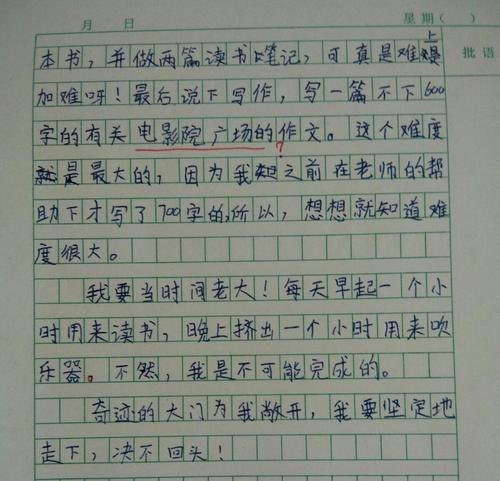 月 日 星期( )
批语
本书，并做两篇读书笔记，可真是难上
加难呀！最后说下写作，写一篇不下600
字的有关电影院广场的作文。这个难度
?
就是最大的，因为我之前在老师的帮
助下才写了700字的，所以，想想就知道难
度很大。
我要当时间老大！每天早起一个小
时用来读书，晚上挤出一个小时用来吹
乐器。不然，我是不可能完成的。
奇迹的大门为我敞开，我要坚定地
走下，决不回头！